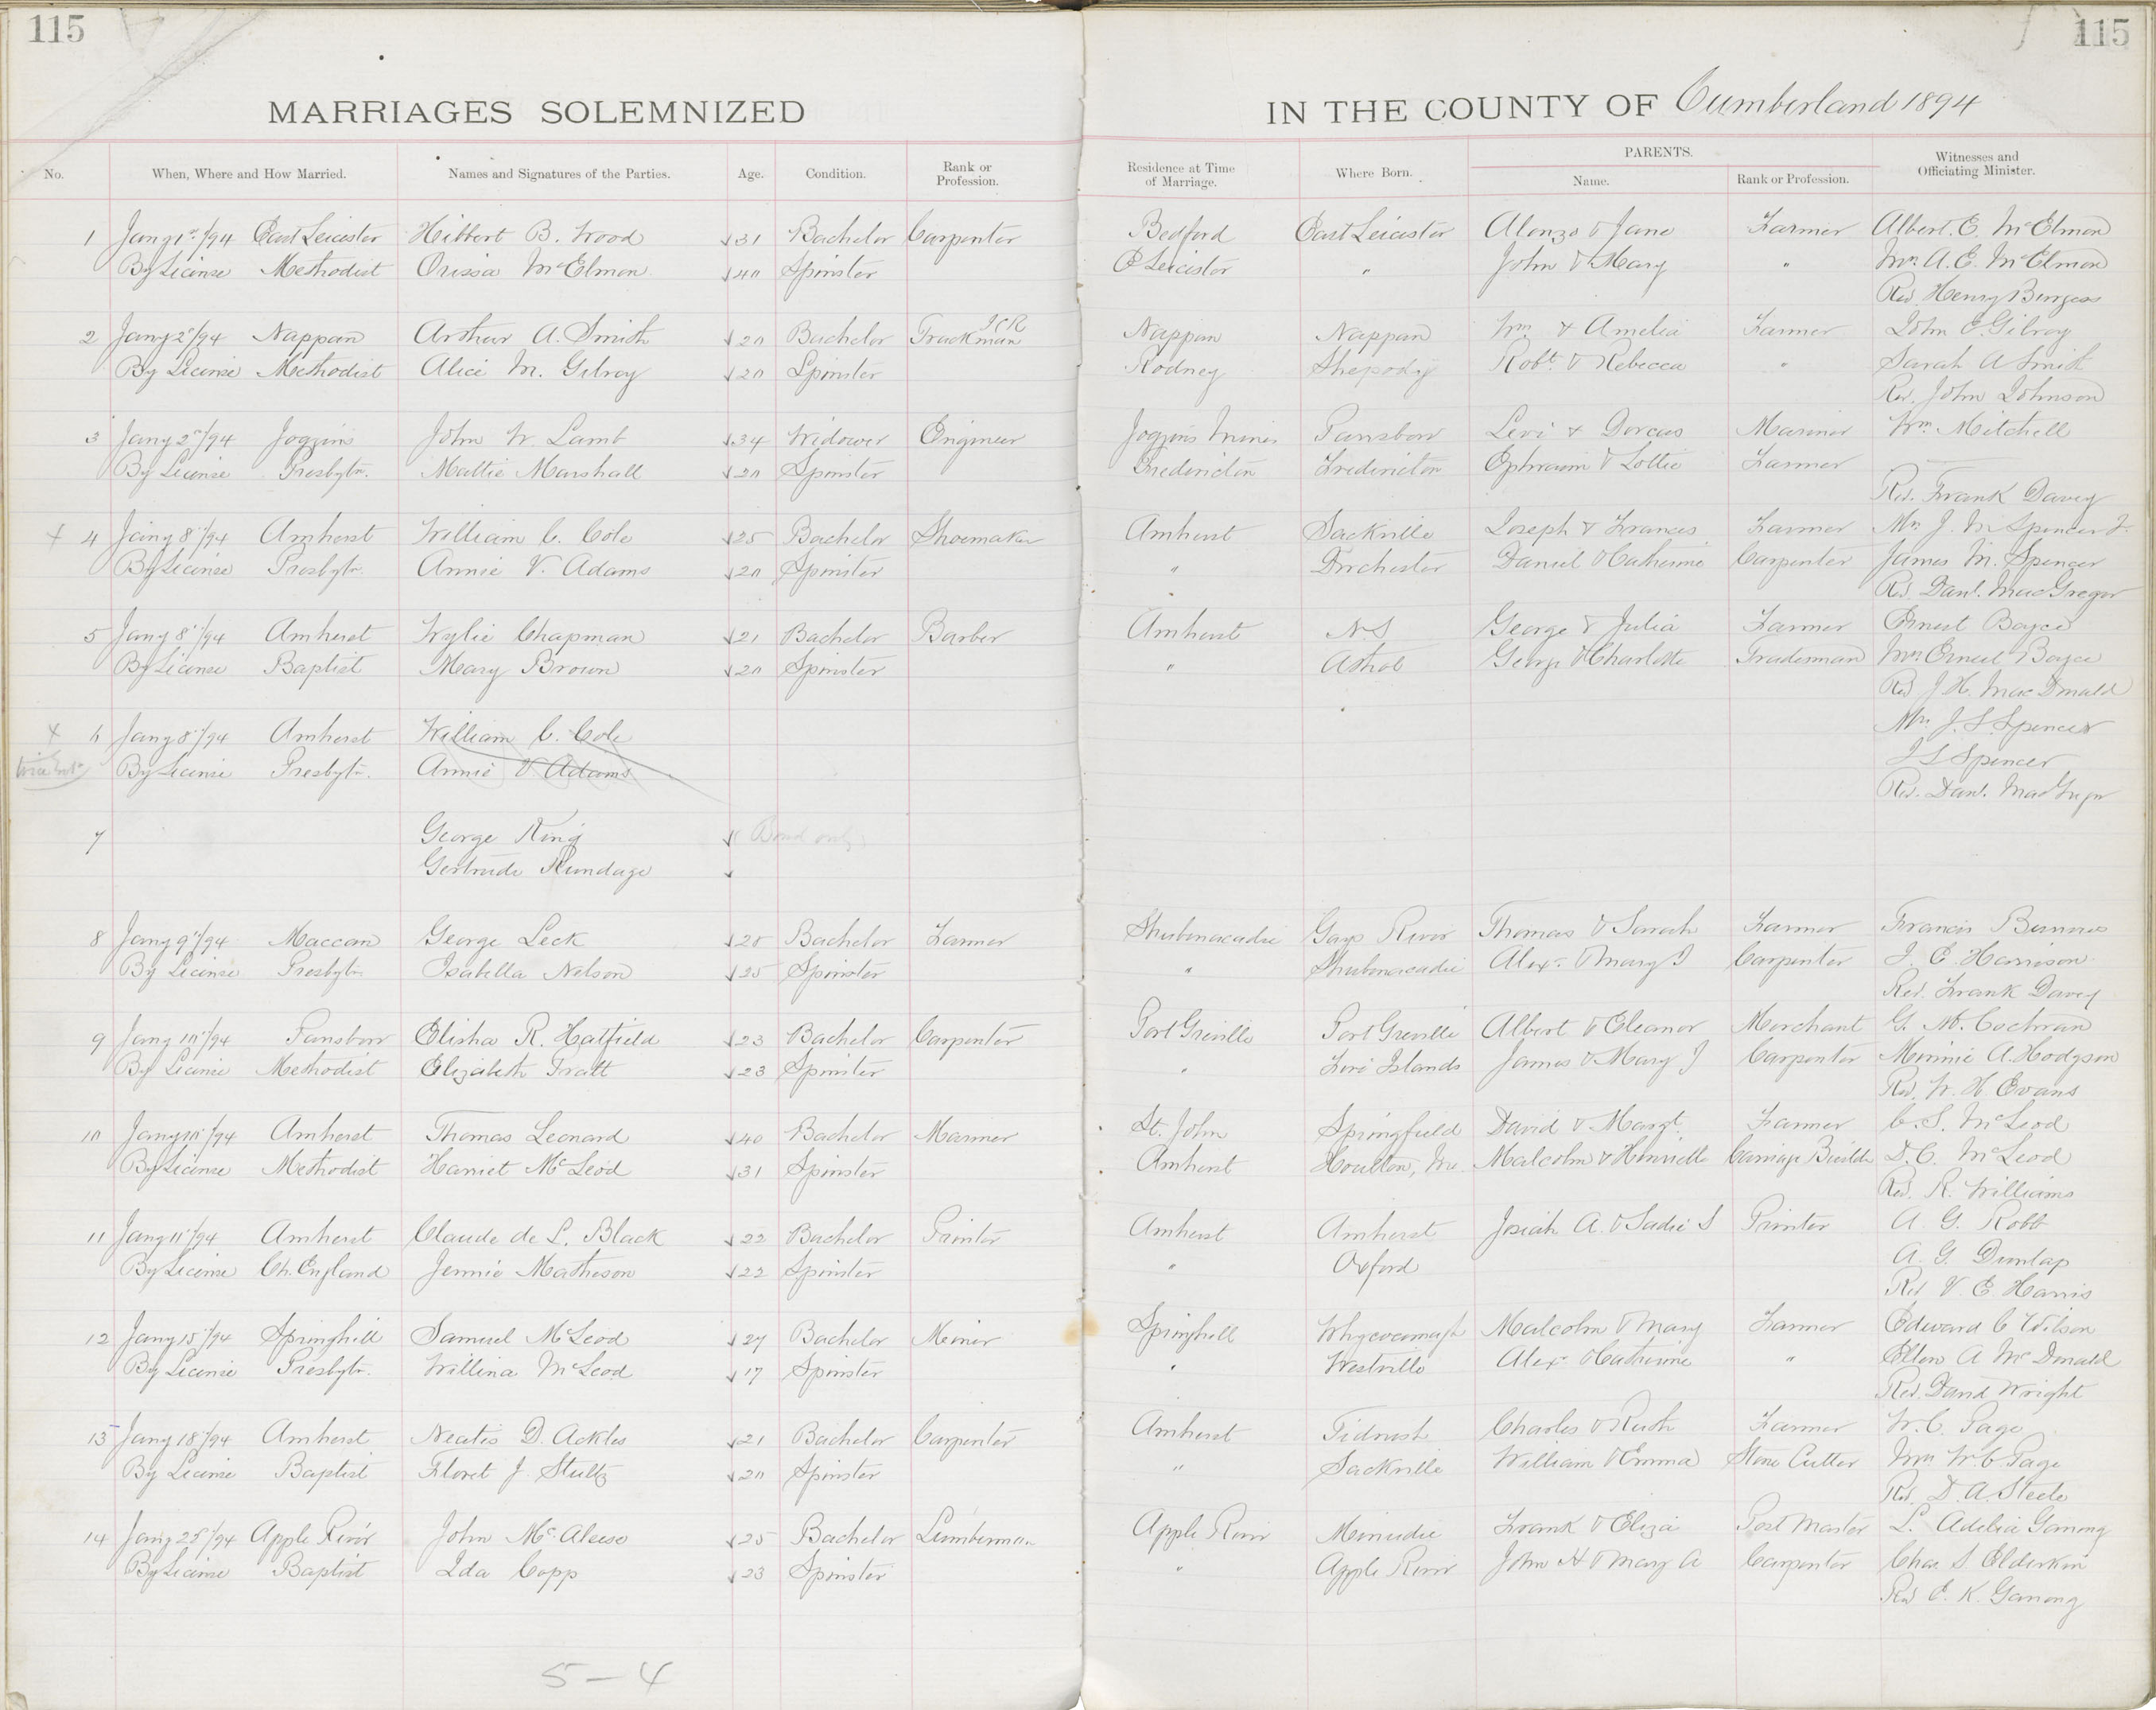 115
115
MARRIAGES SOLEMNIZED
IN THE COUNTY OF Cumberland 1894
No. When, Where and How Married. Names and Signatures of the Parties. Age. Condition. Rank or Profession. Residence at Time of Marriage. Where Born. PARENTS. Name. Rank or Profession. Witnesses and Officiating Minister.
1 Jany 1st/94 East Leicester Hibbert B. Wood 31 Bachelor Carpenter Bedford East Leicester Alonzo & Jane Farmer Albert. E. McElmon
By License Methodist Orissa McElmon 40 Spinster E Leicester " John & Mary " Mrs. A. E. McElmon
Rev Henry Burgess
2 Jany 2"/94 Nappan Arthur A. Smith 20 Bachelor Trackman ICR Nappan Nappan Wm & Amelia Farmer John E. Gilroy
By License Methodist Alice M. Gilroy 20 Spinster Rodney Shepody Robt. & Rebecca " Sarah A Smith
Rev. John Johnson
3 Jany 2"/94 Joggins John W. Lamb 34 Widower Engineer Joggins Mines Parrsboro Levi & Dorcas Mariner Wm Mitchell
By License Presbytn. Mattie Marshall 20 Spinster Fredericton Fredericton Ephraim & Lottie Farmer
Rev. Frank Davey
x 4 Jany 8"/94 Amherst William C. Cole 25 Bachelor Shoemaker Amherst Sackville Joseph & Frances Farmer Mrs J. M Spencer
By License Presbytn. Annie V. Adams 20 Spinster " Dorchester Daniel & Catherine Carpenter James M. Spencer
Rev. Danl. MacGregor
5 Jany 8"/94 Amherst Wylie Chapman 21 Bachelor Barber Amherst N.S George & Julia Farmer Ernest Boyce
By License Baptist Mary Brown 20 Spinster " Athol George & Charlotte Tradesman Mrs Ernest Boyce
Rev J. H. MacDonald
x 6 Jany 8"/94 Amherst William C. Cole Mrs J. S. Spencer
By License Presbytn. Annie V Adams J S Spencer
Rev. Danl. MacGregor
7 George King Bond only
Gertrude Rundage
8 Jany 9"/94 Maccan George Leck 28 Bachelor Farmer Shubenacadie Gays River Thomas & Sarah Farmer Francis
By License Presbytn Isabella Nelson 25 Spinster " Shubenacadie Alexr. & Mary J Carpenter J. E. Harrison
Rev. Frank Davey
9 Jany 10"/94 Parrsboro Elisha R. Hatfield 23 Bachelor Carpenter Port Greville Port Greville Albert & Eleanor Merchant G. M. Cochran
By License Methodist Elizabeth Pratt 23 Spinster " Five Islands James & Mary J Carpenter Minnie A. Hodgson
Rev. W. H Evans
10 Jany 10"/94 Amherst Thomas Leonard 40 Bachelor Mariner St. John Springfield David & Margt. Farmer C. S. McLeod
By License Methodist Harriet McLeod 31 Spinster Amherst Houlton, Me. Malcolm & Henrietta Carriage Builder D. C. McLeod
Rev. R. Williams
11 Jany 11"/94 Amherst Claude de L. Black 22 Bachelor Printer Amherst Amherst Josiah A. & Sadie S Printer A. G. Robb
By License Ch. England Jennie Matheson 22 Spinster " Oxford A. G. Dunlap
Rev V. E. Harris
12 Jany 15"/94 Springhill Samuel McLeod 27 Bachelor Miner Springhill Whycocomagh Malcolm & Mary Farmer Edward C Wilson
By License Presbytn. Willina McLeod 17 Spinster " Westville Alexr & Catherine " Ellen A McDonald
Rev. David Wright
13 Jany 18"/94 Amherst Neatis D. Ackles 21 Bachelor Carpenter Amherst Tidnish Charles & Ruth Farmer W. C. Page
By License Baptist Floret J. Stultz 20 Spinster " Sackville William & Emma Stone Cutter Mrs W. C Page
Rev. D. A. Steele
14 Jany 25"/94 Apple River John McAleese 25 Bachelor Lumberman Apple River Minudie Frank & Eliza Post Master L. Adelia Ganong
By License Baptist Ida Copp 23 Spinster " Apple River John H & Mary A Carpenter Chas S Elderkin
Rev E. K. Ganong
5-4